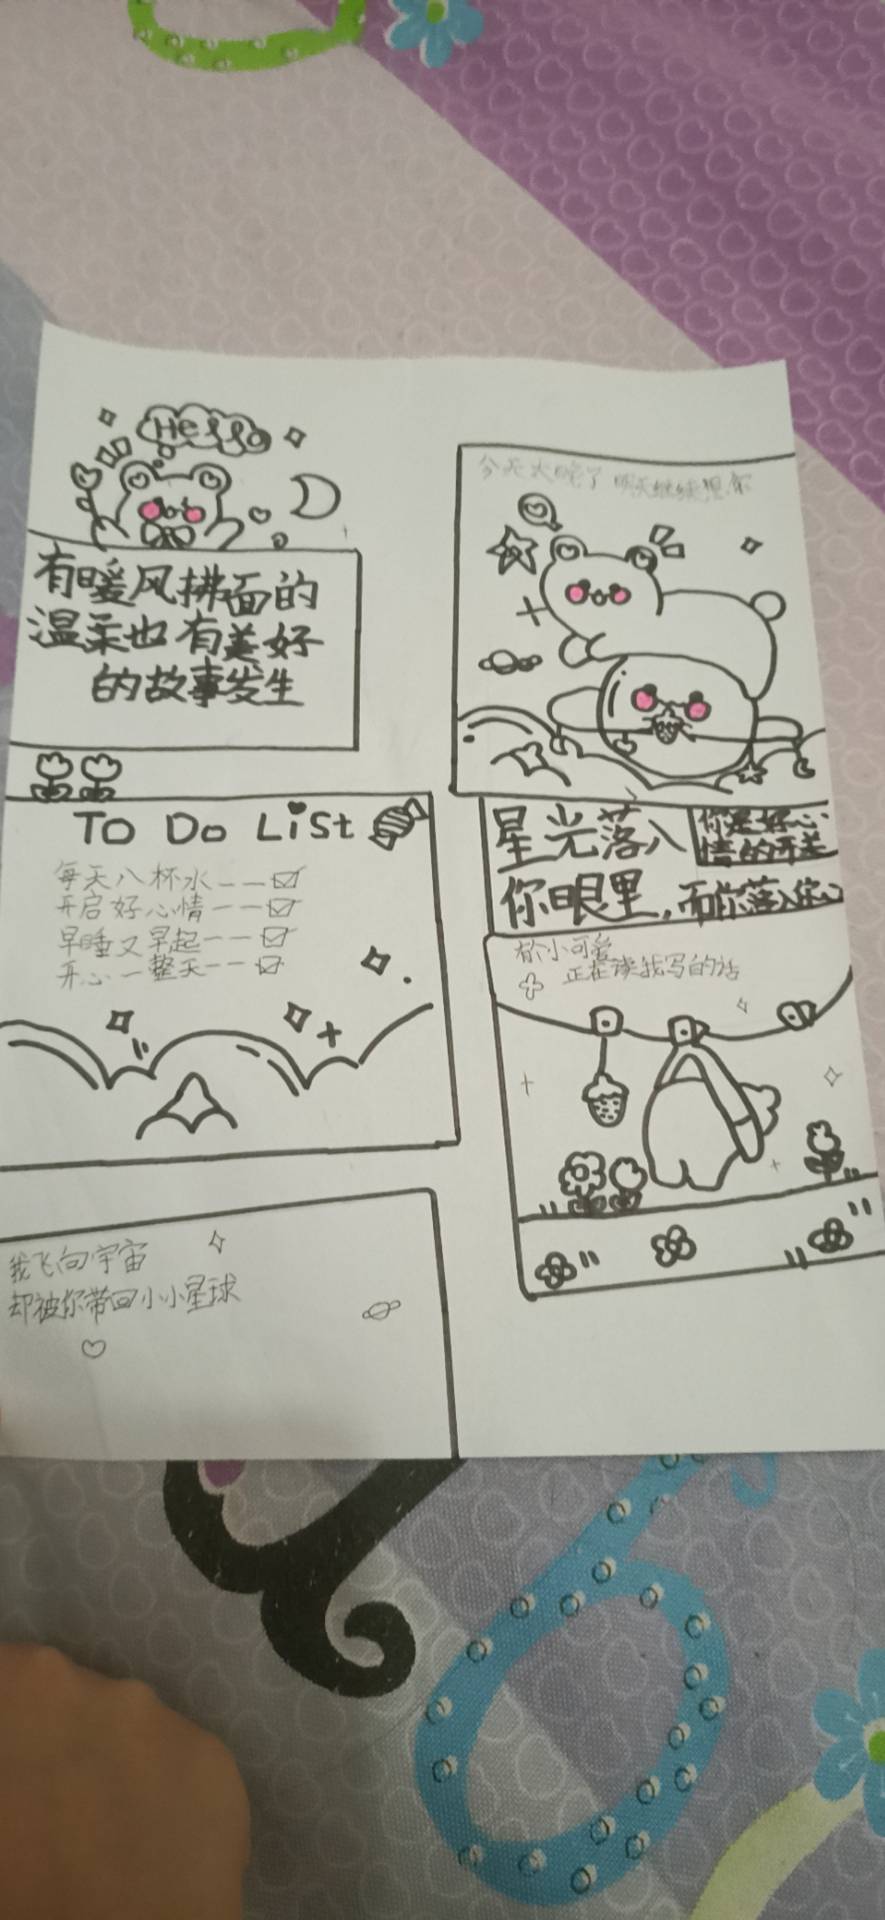 Hello
有暖风拂面的
温柔也有美好
的故事发生
TO DO LiSt
每天八杯水---☑
开启好心情---☑
早睡又早起---☑
开心一整天---☑
我飞向宇宙
却被你带回小小星球
今天太晚了 明天继续想你
星光落入
你眼里,而你落入我心
你是好心
情的开关
有个小可爱
正在读我写的话